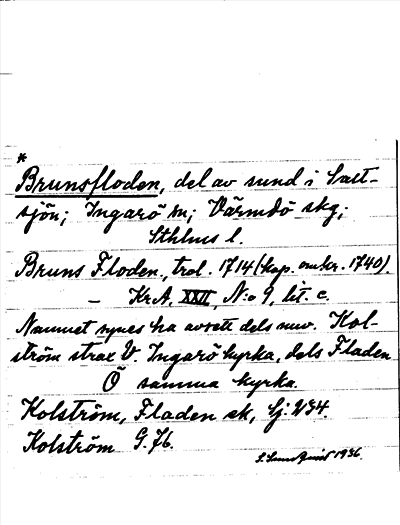 *
Brunsfloden, del av sund i Salt-
sjön; Ingarö sn; Värmdö skg;
Sthlms l.
Bruns Floden, trol. 1714 (kop. omkr. 1740),
– Kr.A. XXII, N:o 9, lit. c.
Namnet synes ha avsett dels nuv. Kol-
ström strax V. Ingarö kyrka, dels Fladen
Ö samma kyrka.
Kolström, Fladen ek, Sj: 234.
Kolström G. 76.
1936.